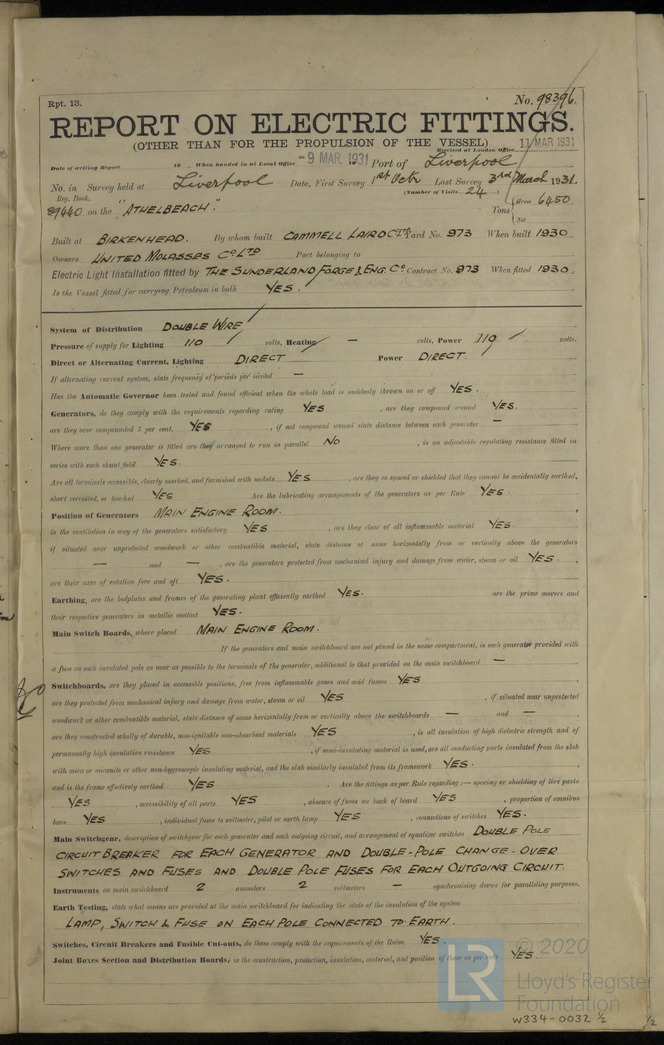 Rpt. 13.
No. 98396.
REPORT ON ELECTRIC FITTINGS.
(OTHER THAN FOR THE PROPULSION OF THE VESSEL)
Received at London Office 11 MAR 1931
Date of writing Report 19 When handed in at Local Office -9 MAR. 1931 Port of Liverpool
No. in Survey held at Liverpool Date, First Survey 1st Octr Last Survey 3rd March 1931.
Reg. Book. (Number of Visits 24)
89440 on the "ATHELBEACH". Tons { Gross 6450
Net
Built at BIRKENHEAD. By whom built CAMMELL LAIRD Yard No. 973 When built 1930
Owners UNITED MOLASSES Co LTD Port belonging to
Electric Light Installation fitted by THE SUNDERLAND FORGE & ENG. Co Contract No. 973 When fitted 1930.
Is the Vessel fitted for carrying Petroleum in bulk YES.
System of Distribution DOUBLE WIRE
Pressure of supply for Lighting 110 volts, Heating — volts, Power 110 volts.
Direct or Alternating Current, Lighting DIRECT Power DIRECT.
If alternating current system, state frequency of periods per second —
Has the Automatic Governor been tested and found efficient when the whole load is suddenly thrown on or off YES.
Generators, do they comply with the requirements regarding rating YES, are they compound wound YES.
are they over compounded 5 per cent. YES, if not compound wound state distance between each generator —
Where more than one generator is fitted are they arranged to run in parallel NO, is an adjustable regulating resistance fitted in
series with each shunt field YES.
Are all terminals accessible, clearly marked, and furnished with sockets YES, are they so spaced or shielded that they cannot be accidentally earthed,
short circuited, or touched YES Are the lubricating arrangements of the generators as per Rule YES.
Position of Generators MAIN ENGINE ROOM.
is the ventilation in way of the generators satisfactory YES, are they clear of all inflammable material YES.
if situated near unprotected woodwork or other combustible material, state distance of same horizontally from or vertically above the generators
— and —, are the generators protected from mechanical injury and damage from water, steam or oil YES.
are their axes of rotation fore and aft YES.
Earthing, are the bedplates and frames of the generating plant efficiently earthed YES. are the prime movers and
their respective generators in metallic contact YES.
Main Switch Boards, where placed MAIN ENGINE ROOM.
If the generators and main switchboard are not placed in the same compartment, is each generator provided with
a fuse on each insulated pole as near as possible to the terminals of the generator, additional to that provided on the main switchboard —
Switchboards, are they placed in accessible positions, free from inflammable gases and acid fumes YES
are they protected from mechanical injury and damage from water, steam or oil YES, if situated near unprotected
woodwork or other combustible material, state distance of same horizontally from or vertically above the switchboards — and —
are they constructed wholly of durable, non-ignitable non-absorbent materials YES, is all insulation of high dielectric strength and of
permanently high insulation resistance YES, if semi-insulating material is used, are all conducting parts insulated from the slab
with mica or micanite or other non-hygroscopic insulating material, and the slab similarly insulated from its framework YES.
and is the frame effectively earthed YES. Are the fittings as per Rule regarding:— spacing or shielding of live parts
YES, accessibility of all parts YES, absence of fuses on back of board YES, proportion of omnibus
bars YES, individual fuses to voltmeter, pilot or earth lamp YES, connections of switches YES.
Main Switchgear, description of switchgear for each generator and each outgoing circuit, and arrangement of equalizer switches DOUBLE POLE
CIRCUIT BREAKER FOR EACH GENERATOR AND DOUBLE-POLE CHANGE-OVER
SWITCHES AND FUSES AND DOUBLE POLE FUSES FOR EACH OUTGOING CIRCUIT.
Instruments on main switchboard 2 ammeters 2 voltmeters — synchronising device for paralleling purposes.
Earth Testing, state what means are provided at the main switchboard for indicating the state of the insulation of the system
LAMP, SWITCH & FUSE ON EACH POLE CONNECTED TO EARTH.
Switches, Circuit Breakers and Fusible Cut-outs, do these comply with the requirements of the Rules YES
Joint Boxes Section and Distribution Boards, is the construction, protection, insulation, material, and position of these as per rule YES.
LR
© 2020
Lloyd's Register
Foundation
W334-0032 ½